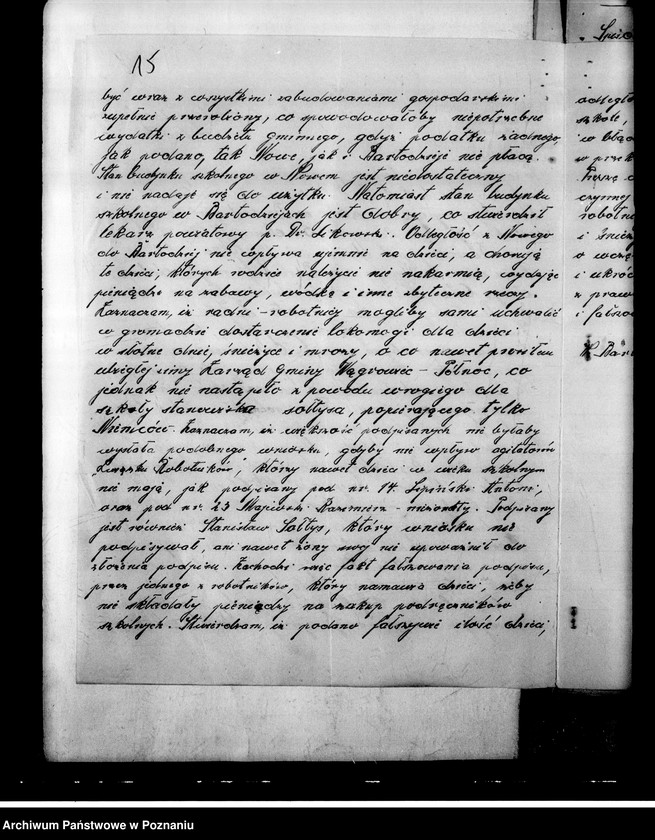 15
być wraz z wszystkimi zabudowaniami gospodarskimi
zupełnie przerobiony, co spowodowałoby niepotrzebne
wydatki z budżetu gminnego, gdyż podatku żadnego,
jak podano, tak Nowe, jak i Bartodzieje nie płacą.
Stan budynku szkolnego w Nowem jest niedostateczny
i nie nadaje się do użytku. Natomiast stan budynku
szkolnego w Bartodziejach jest dobry, co stwierdził
lekarz powiatowy p. Dr. Likowski. Odległość z Nowego
do Bartodziej nie wpływa ujemnie na dzieci, a chorują
te dzieci, których rodzice należycie nie nakarmią, wydając
pieniądze na zabawy, wódkę i inne zbyteczne rzeczy.
Zaznaczam, iż radni-robotnicy mogliby sami uchwalić
w gromadzie dostarczenie lokomocji dla dzieci
w słotne dnie, śnieżyce i mrozy, o co nawet prosiłem
ubiegłej zimy Zarząd Gminy Wągrowiec-Północ, co
jednak nie nastąpiło z powodu wrogiego dla
szkoły stanowiska sołtysa, popierającego tylko
Niemców. Zaznaczam, iż większość podpisanych nie byłaby
wysłała podobnego wniosku, gdyby nie wpływ agitatorów
Związku Robotników, którzy nawet dzieci w wieku szkolnym
nie mają, jak podpisany pod nr. 14. Lipiński Antoni,
oraz pod nr. 23 Majewski Kazimierz - nieżonaty. Podpisany
jest również Stanisław Sołtys, który wniosku nie
podpisywał, ani nawet żony swej nie upoważnił do
złożenia podpisu. Zachodzi więc fakt fałszowania podpisu,
przez jednego z robotników, który namawia dzieci, żeby
nie składały pieniędzy na zakup podręczników
szkolnych. Stwierdzam, iż podano fałszywie ilość dzieci,
odległo
szkole,
i śnież
i ukróc
z praw
i fałszo
Archiwum Państwowe w Poznaniu